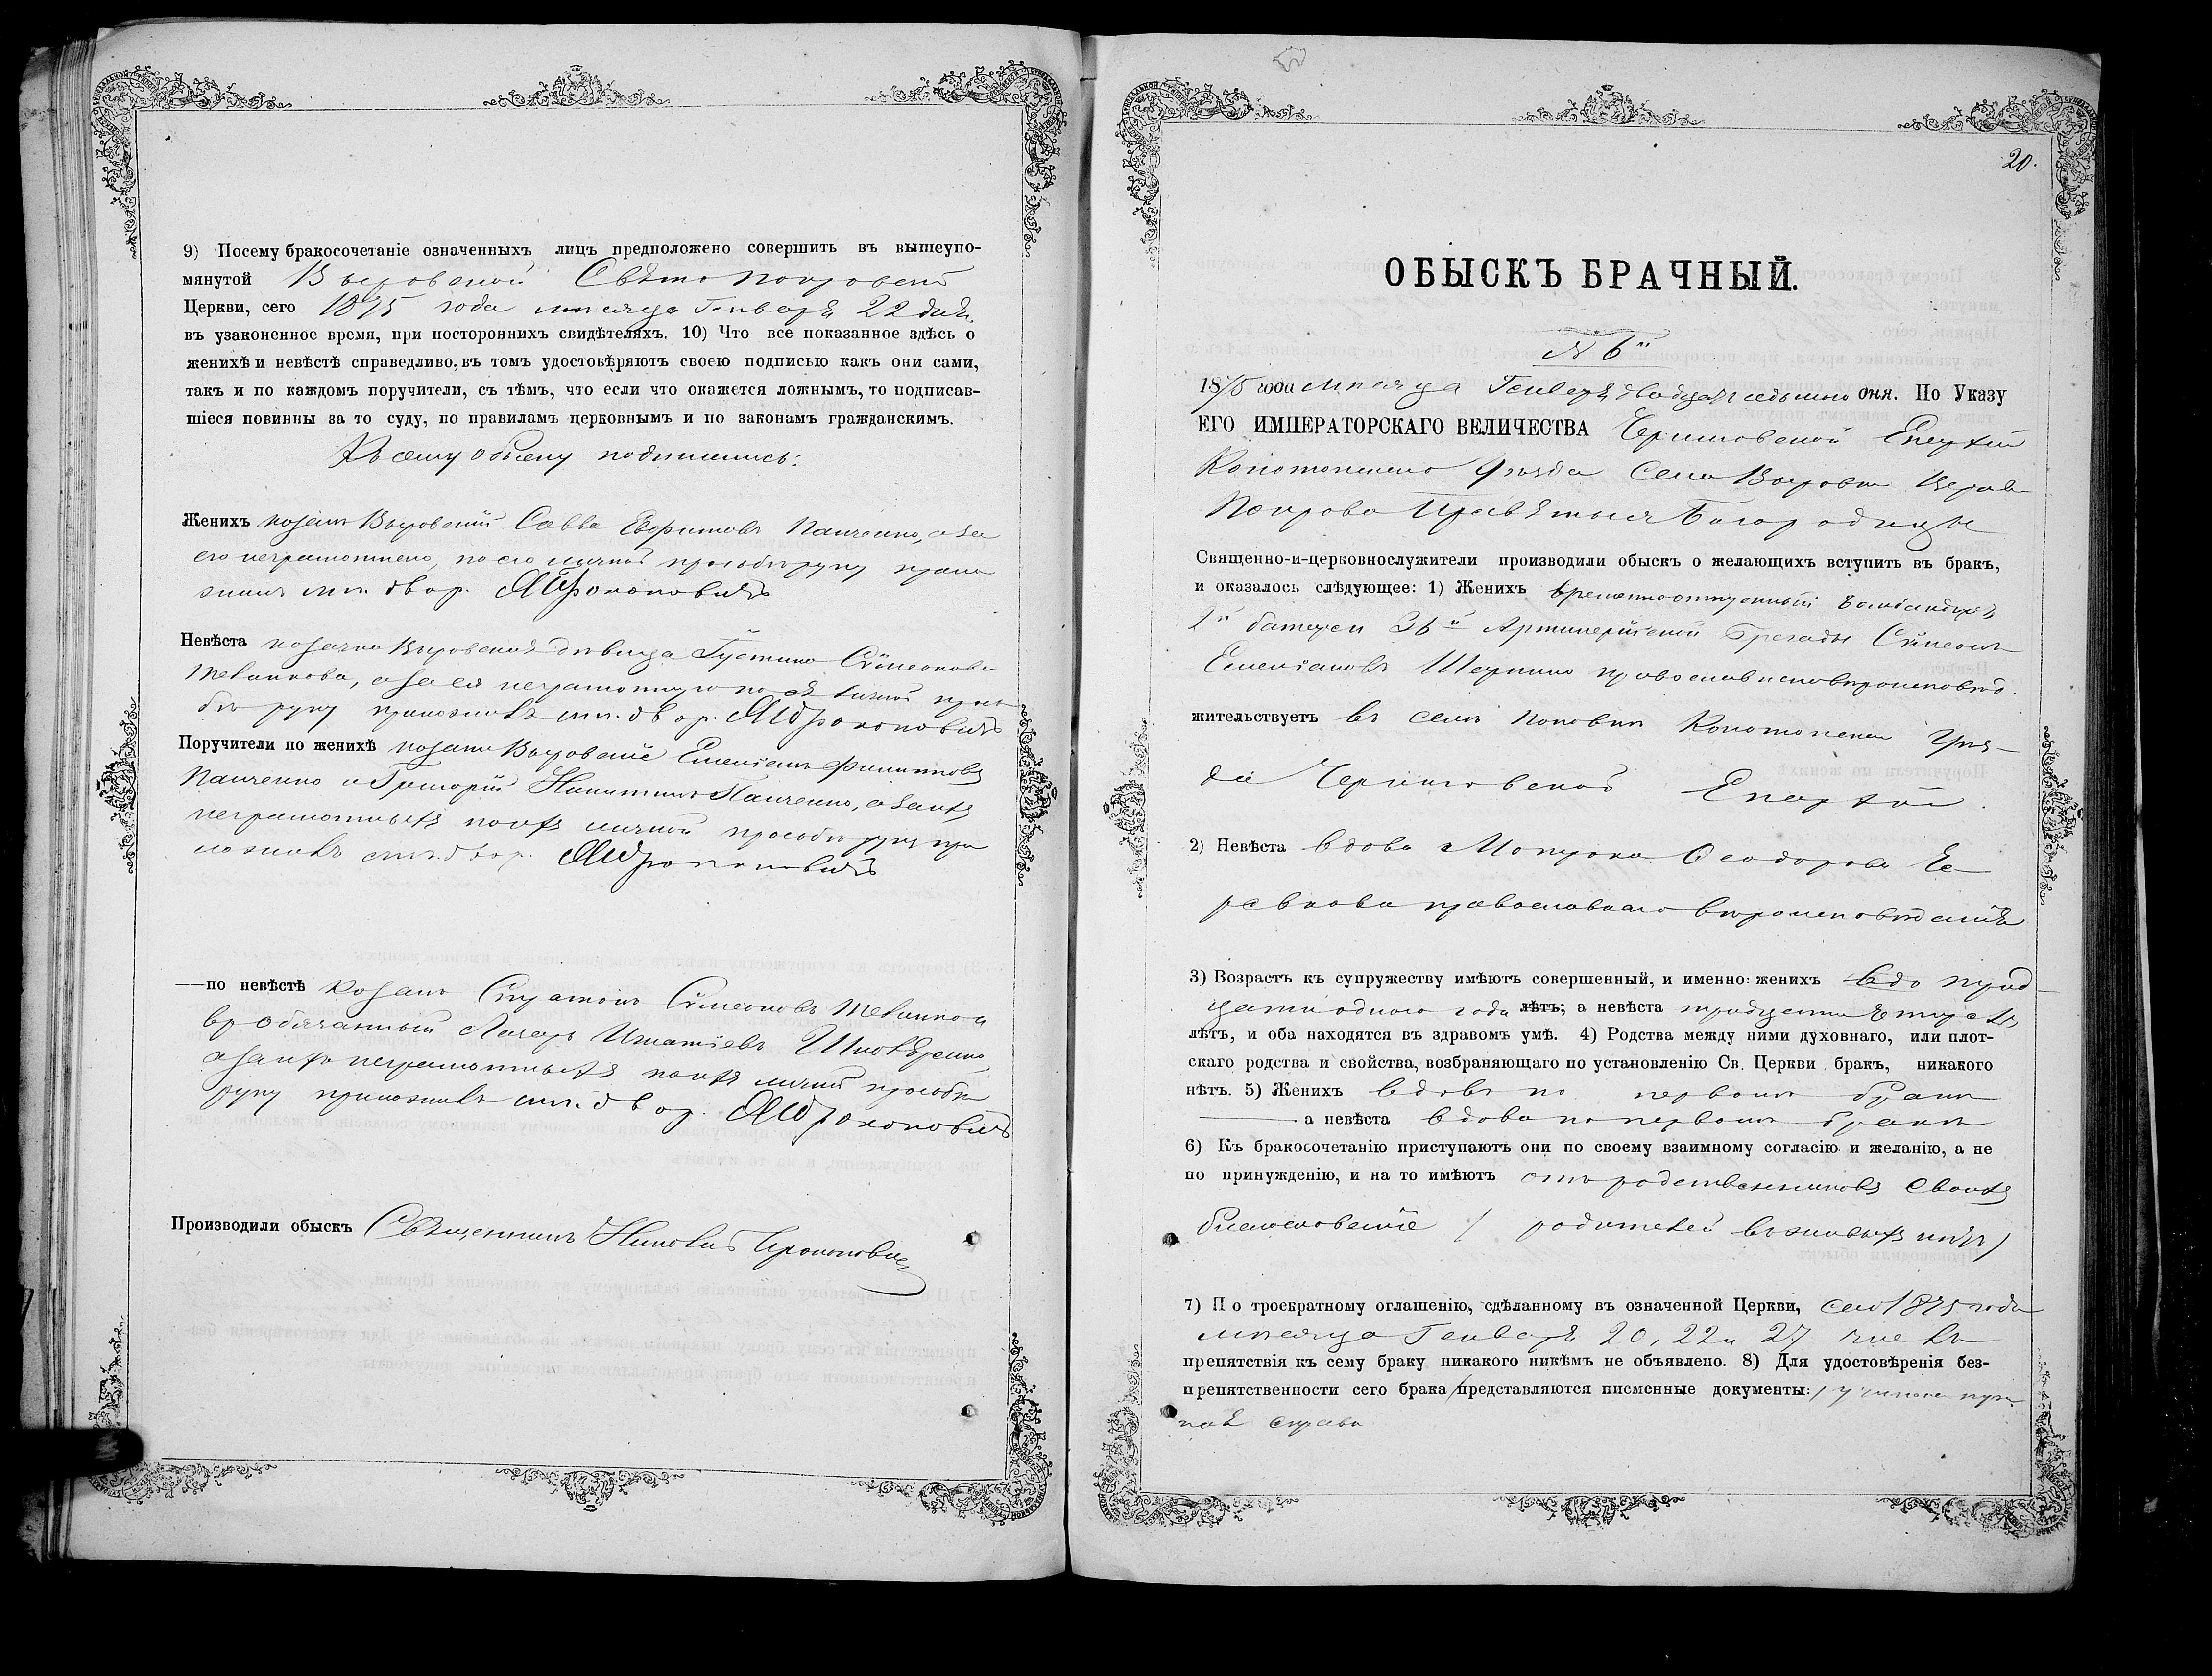 9) Посему бракосочетаніе означенныхъ лицъ предположено совершить въ вышеупо-
мянутой Выровской Свято Покровской
Церкви, сего 1875 года мѣсяца Генваря 22 дня.
въ узаконенное время, при постороннихъ свидѣтеляхъ. 10) Что все показанное здѣсь о
женихѣ и невѣстѣ справедливо, въ томъ удостовѣряютъ своею подписью какъ они сами,
такъ и по каждомъ поручители, съ тѣмъ, что если что окажется ложнымъ, то подписав-
шіеся повинны за то суду, по правиламъ церковнымъ и по законамъ гражданскимъ.
Къ сему обыску подписались:
Женихъ козакъ Выровскій Савва Евфимовъ Панченко, а за
его неграмотнаго, по его личной прозьбѣ руку прило
жилъ двор. Прокоповичъ
Невѣста козачка Выровская дѣвица Іустина Сѵмеонова
а за ея неграмотную по ея личной прозь
бѣ руку приложилъ двор. Прокоповичъ
Поручители по женихѣ козаки Выровскіе Емеліанъ Филиповъ
Панченко и Григорій Никитинъ Панченко, а за ихъ
неграмотныхъ по ихъ личной прозьбѣ руку при
ложилъ двор. Прокоповичъ
—по невѣстѣ козакъ Сѵмеоновъ
Лазарь Игнатіевъ
а за ихъ неграмотныхъ по ихъ личной прозьбѣ
руку приложилъ двор. Прокоповичъ
Производили обыскъ Священникъ Николай Прокоповичъ
20.
ОБЫСКЪ БРАЧНЫЙ.
№ 6й
1875 года мѣсяца Генваря двадцать седьмого дня. По Указу
ЕГО ИМПЕРАТОРСКАГО ВЕЛИЧЕСТВА Черниговской Епархіи
Конотопскаго уѣзда села Выровки Церкви
Покрова Пресвятыя Богородицы
Священно-и-церковнослужители производили обыскъ о желающихъ вступить въ бракъ,
и оказалось слѣдующее: 1) Женихъ временноотпускный
батареи 36й Артилерійской Брегады Сѵмеонъ
Емеліановъ православнаго вѣроисповѣд.
жительствуетъ въ селѣ Поповкѣ Конотопскаго уѣз-
да Черниговской Епархіи.
2) Невѣста вдова Ѳеодорова
православнаго вѣроисповѣданія
3) Возрастъ къ супружеству имѣютъ совершенный, и именно: женихъ трид
цати одного года лѣтъ; а невѣста тридцати четырехъ
лѣтъ, и оба находятся въ здравомъ умѣ. 4) Родства между ними духовнаго, или плот-
скаго родства и свойства, возбраняющаго по установленію Св. Церкви бракъ, никакого
нѣтъ. 5) Женихъ вдовъ по первомъ бракѣ
а невѣста вдова по первомъ бракѣ
6) Къ бракосочетанію приступаютъ они по своему взаимному согласію и желанію, а не
по принужденію, и на то имѣютъ отъ родственниковъ своихъ
благословеніе / родителей въ живыхъ нѣтъ /
7) По троекратному оглашенію, сдѣланному въ означенной Церкви, сего 1875 года
мѣсяца Генваря 20, 22 и 27 числъ
препятствія къ сему браку никакого никѣмъ не объявлено. 8) Для удостовѣренія без-
препятственности сего брака представляются писменные документы: